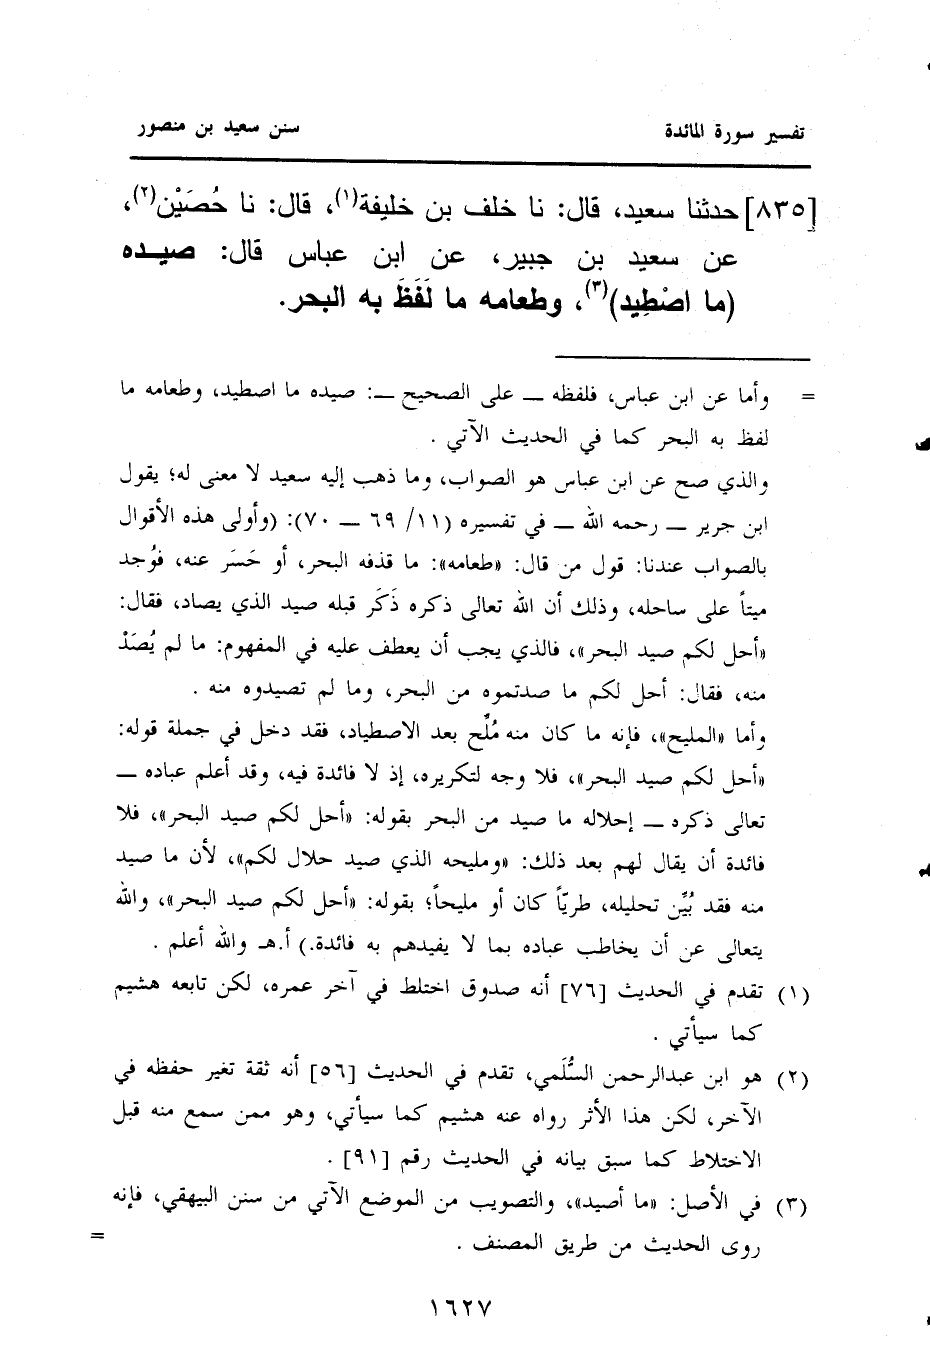 تفسير سورة المائدة
سنن سعيد بن منصور
[٨٣٥] حدثنا سعيد، قال: نا خلف بن خليفة(١)، قال: نا حُصَيْن(٢)،
عن سعيد بن جبير، عن ابن عباس قال: صيده
(ما اصْطِيد)(٣)، وطعامه ما لَفَظَ به البحر.
= وأما عن ابن عباس، فلفظه ــ على الصحيح ــ: صيده ما اصطيد، وطعامه ما
لفظ به البحر كما في الحديث الآتي .
والذي صح عن ابن عباس هو الصواب، وما ذهب إليه سعيد لا معنى له؛ يقول
ابن جرير ــ رحمه الله ــ في تفسيره (١١/ ٦٩ ــ ٧٠): (وأولى هذه الأقوال
بالصواب عندنا: قول من قال: «طعامه»: ما قذفه البحر، أو حَسَر عنه، فوُجد
ميتاً على ساحله، وذلك أن الله تعالى ذكره ذَكَر قبله صيد الذي يصاد، فقال:
«أحل لكم صيد البحر»، فالذي يجب أن يعطف عليه في المفهوم: ما لم يُصَدْ
منه، فقال: أحل لكم ما صدتموه من البحر، وما لم تصيدوه منه .
وأما «المليح»، فإنه ما كان منه مُلِّح بعد الاصطياد، فقد دخل في جملة قوله:
«أحل لكم صيد البحر»، فلا وجه لتكريره، إذ لا فائدة فيه، وقد أعلم عباده ــ
تعالى ذكره ــ إحلاله ما صيد من البحر بقوله: «أحل لكم صيد البحر»، فلا
فائدة أن يقال لهم بعد ذلك: «ومليحه الذي صيد حلال لكم»، لأن ما صيد
منه فقد بُيِّن تحليله، طريّاً كان أو مليحاً؛ بقوله: «أحل لكم صيد البحر»، والله
يتعالى عن أن يخاطب عباده بما لا يفيدهم به فائدة.) أ.هـ والله أعلم .
(١) تقدم في الحديث [٧٦] أنه صدوق اختلط في آخر عمره، لكن تابعه هشيم
كما سيأتي .
(٢) هو ابن عبدالرحمن السُّلَمي، تقدم في الحديث [٥٦] أنه ثقة تغير حفظه في
الآخر، لكن هذا الأثر رواه عنه هشيم كما سيأتي، وهو ممن سمع منه قبل
الاختلاط كما سبق بيانه في الحديث رقم [٩١] .
(٣) في الأصل: «ما أصيد»، والتصويب من الموضع الآتي من سنن البيهقي، فإنه
روى الحديث من طريق المصنف . =
١٦٢٧